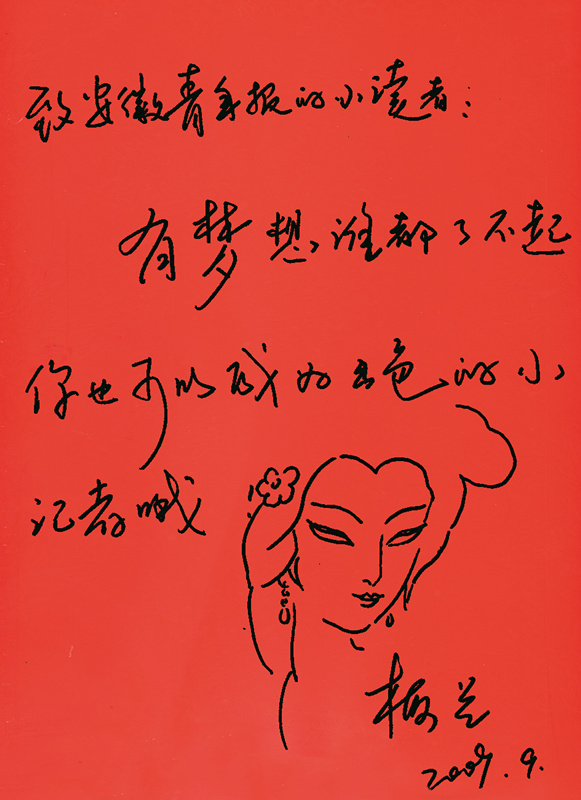 致安徽青年报的小读者:
有梦想谁都了不起
你也可以成为出色的小
记者哦
梅兰
2009.9.